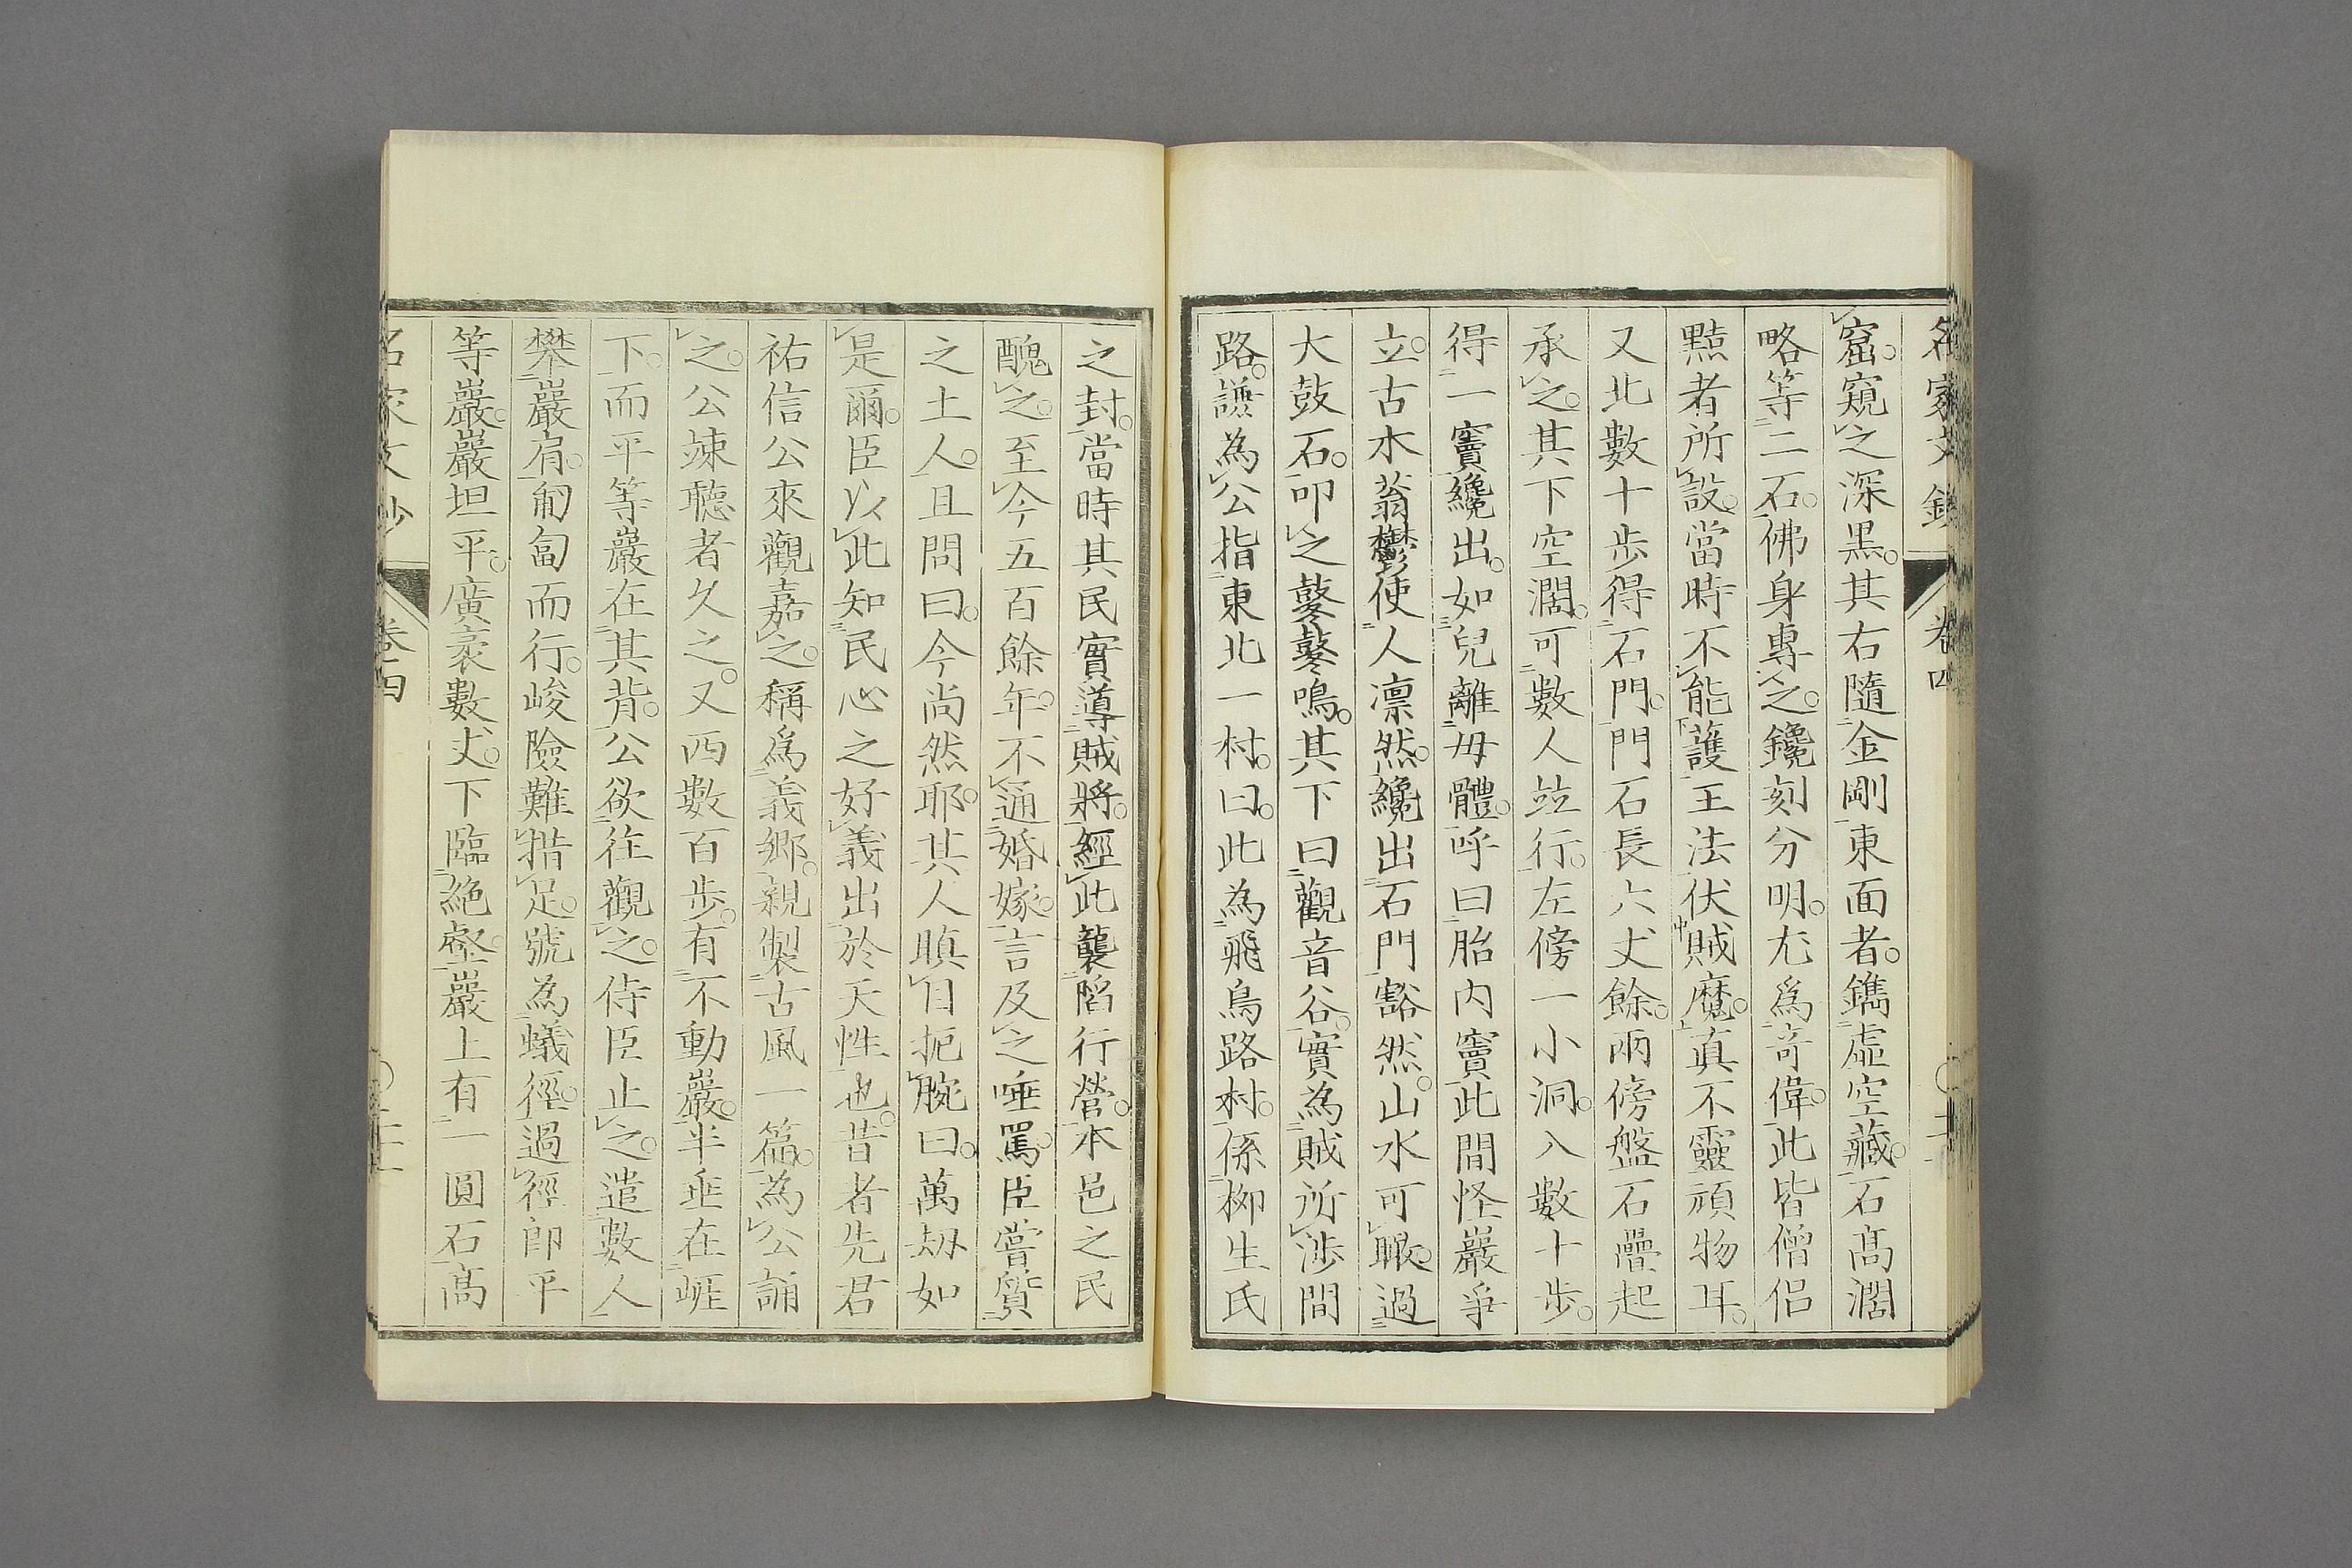 窟。窺之深黒。其右隨金剛東面者。鐫虛空藏。石髙濶
略等二石。佛身專之。鑱刻分明。尤爲竒偉。此皆僧侶
㸃者所設。當時不能護王法伏賊魔。真不靈頑物耳。
又北數十歩得石門。門石長六丈餘。兩傍盤石疊起
承之。其下空濶。可數人竝行。左傍一小洞。入數十歩。
得一竇纔出。如兒離母體。呼曰胎内竇此間怪巖爭
立。古木蓊鬱使人凛然。纔出石門豁然。山水可瞰。過
大鼓石。叩之鼕鼕鳴。其下曰觀音谷。實為賊所渉間
路。謙為公指東北一村。曰。此為飛鳥路村。係栁生氏
之封。當時其民實導賊將。經此襲陷行營。本邑之民
醜之。至今五百餘年。不通婚嫁。言及之唾罵。臣嘗質
之土人。且問曰。今尚然耶。其人瞋目扼腕曰。萬刼如
是爾。臣以此知民心之好義出於天性也。昔者先君
祐信公來觀嘉之。稱爲義郷。親製古風一篇。為公誦
之。公竦聽者久之。又西數百歩。有不動巖。半垂在崕
下。而平等巖在其背。公欲往觀之。侍臣止之。遣數人
攀巖肩。匍匐而行。峻險難措足。號為蟻徑。過徑即平
等巖。巖坦平。廣袤數丈。下臨絶壑。巖上有一圓石髙
名家文鈔
卷四